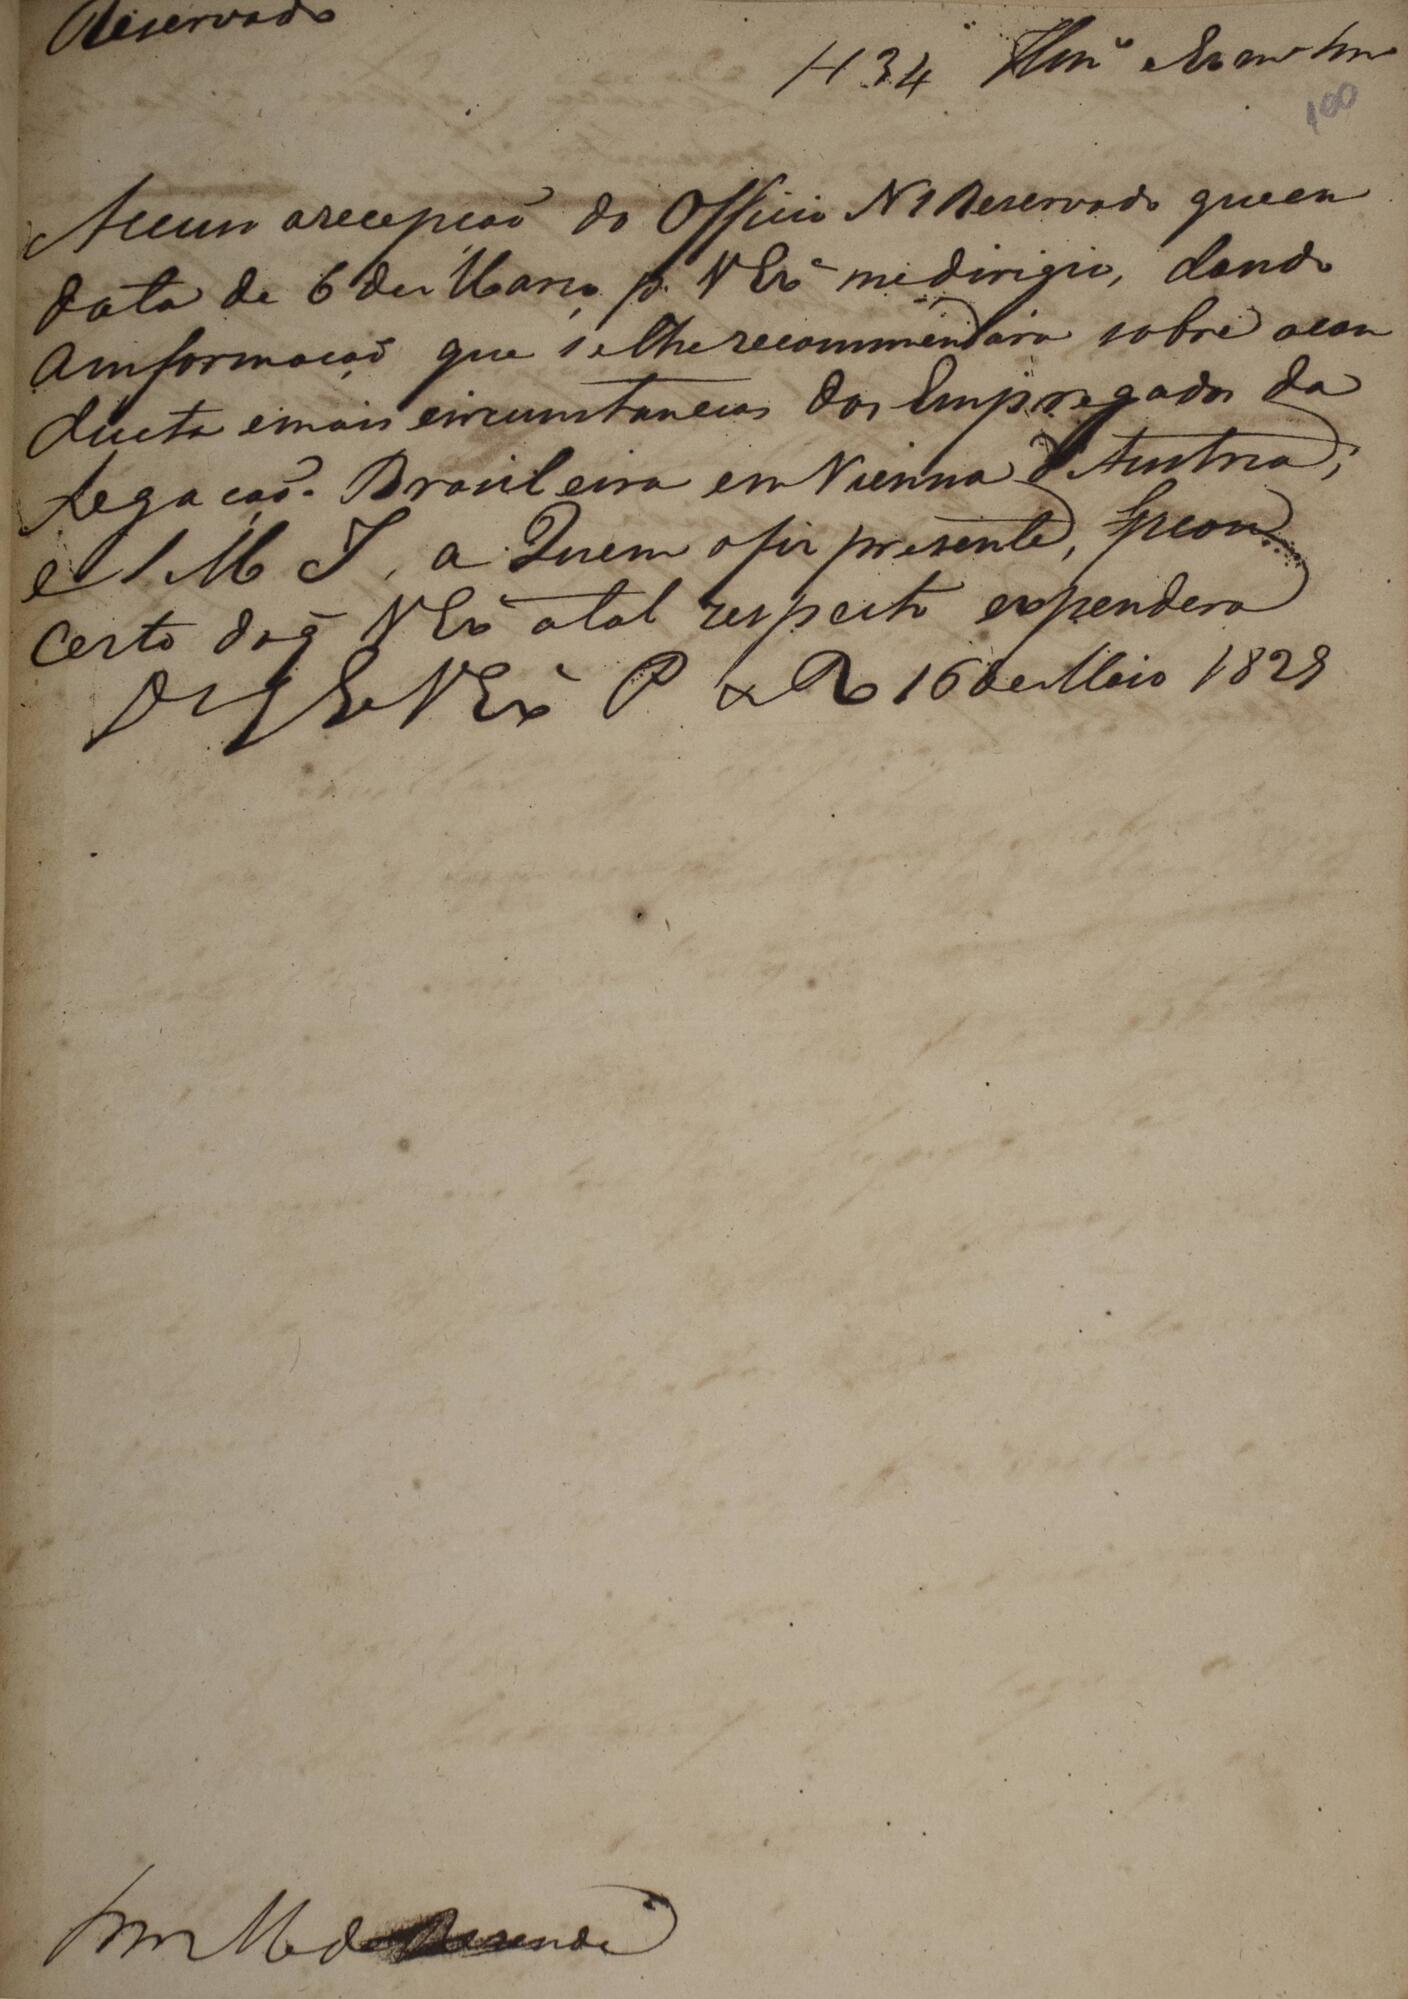 Reservado
H 34 Illmº e Exmº Snr
100
Accuso a recepçaõ do Officio N 1 Reservado que em
data de 6 de Março p. V Exª me dirigio, dando
a informaçaõ que se lhe recommendára sobre a con
ducta e mais circumstancias dos Empregados da
Legaçaõ Brasileira em Vienna d'Austria;
e S M I, a Quem o fiz presente, ficou
certo do q̃ V Exª a tal respeito expendera
D G e V Exª P R 16 de Maio 1829
Snr M de Resende